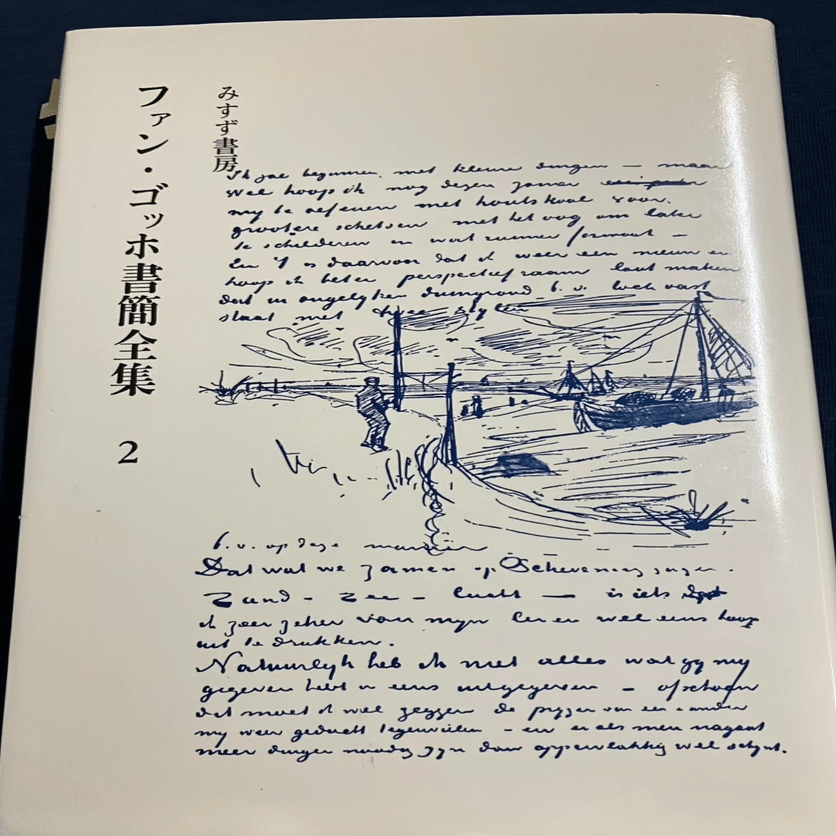 ファン・ゴッホ書簡全集 2
みすず書房
Ik zal beginnen met kleine dingen — maar
wel hoop ik nog dezen zomer
my te oefenen met houtskool voor
grootere schetsen met het oog om later
te schilderen in wat ruimer formaat —
En 't is daarvoor dat ik weer een nieuw en
hoop ik beter perspectiefraam laat maken
dat in ongelyken duingrond b.v. vast
staat met twee
b.v. op deze manier
Dat wat we zamen op Scheveningen zagen.
Zand – Zee – lucht — is iets dat
ik zeer zeker van myn leven wel eens hoop
uit te drukken.
Natuurlyk heb ik niet alles wat gy my
gegeven hebt in eens uitgegeven – ofschoon
dat moet ik wel zeggen de pryzen van een & ander
my weer geducht tegenvielen – en er als men nagaat
meer dingen noodig zyn dan oppervlakkig wel schynt.